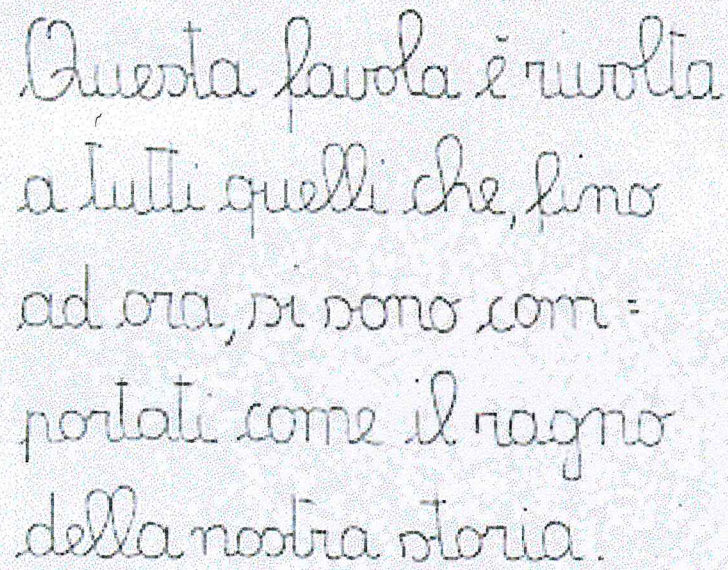 Questa favola è rivolta
a tutti quelli che, fino
ad ora, si sono com=
portati come il ragno
della nostra storia.